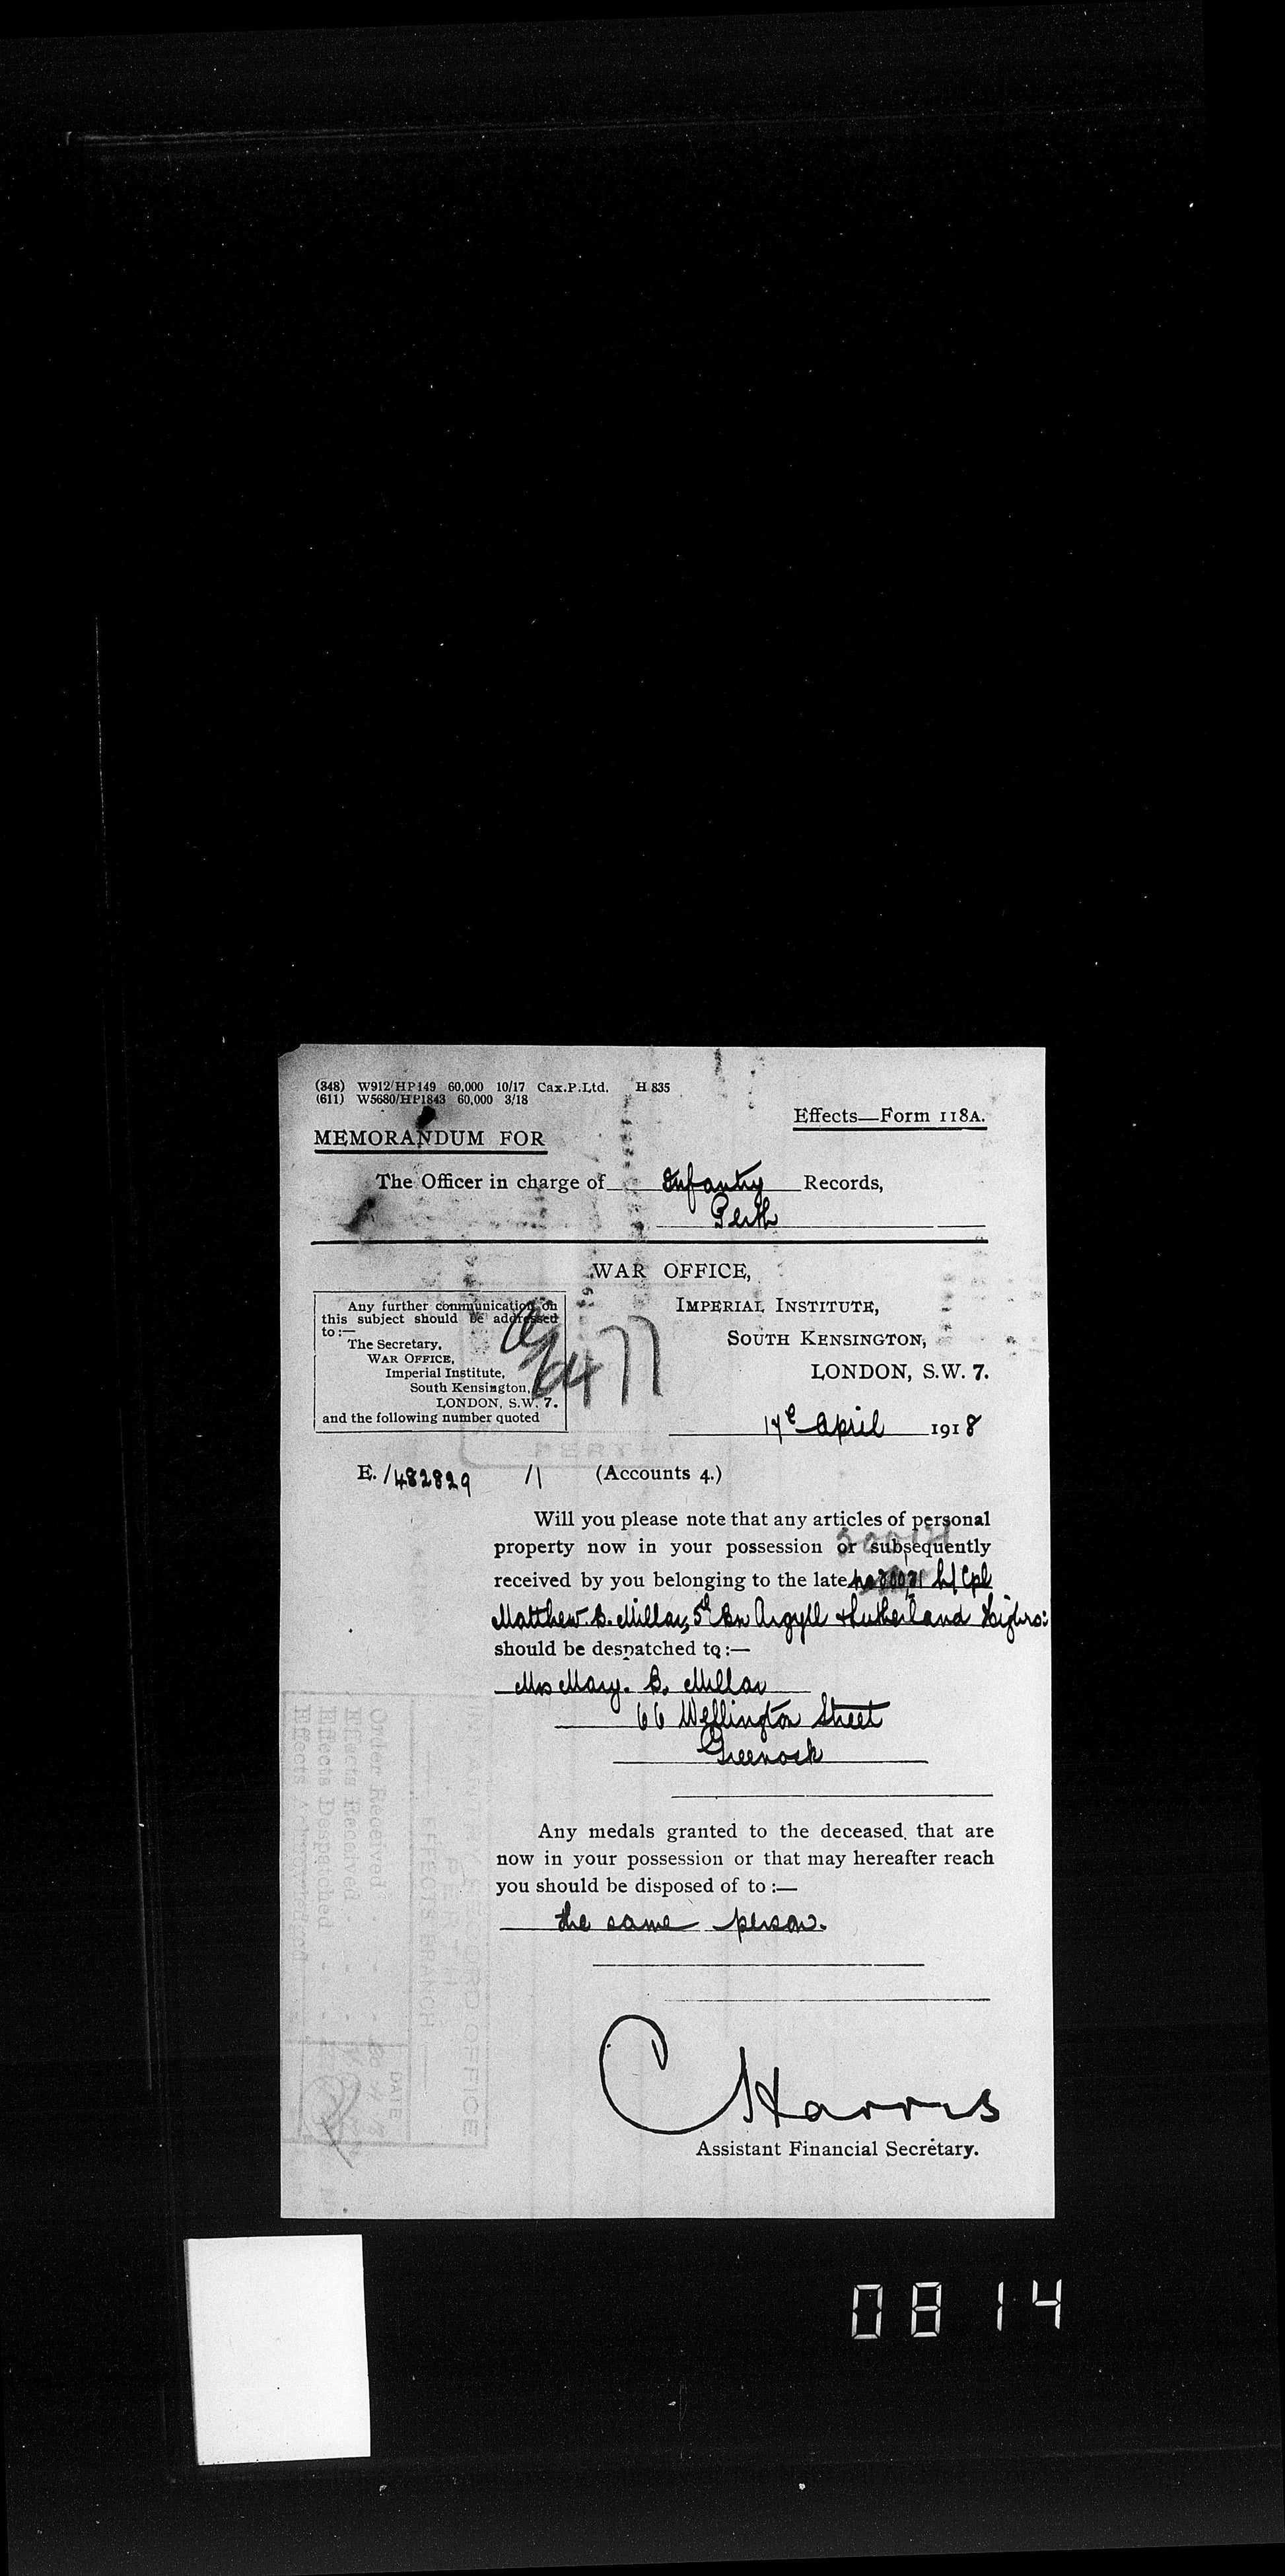 (348) W912/HP149 60,000 10/17 Cax.P.Ltd. H 835
(611) W5680/HP1843 60,000 3/18
Effects—Form 118A.
MEMORANDUM FOR
The Officer in charge of Infantry Records,
Perth
WAR OFFICE,
IMPERIAL INSTITUTE,
SOUTH KENSINGTON,
LONDON, S.W. 7.
Any further communication on
this subject should be addressed
to:—
The Secretary,
WAR OFFICE,
Imperial Institute,
South Kensington,
LONDON, S.W. 7.
and the following number quoted
6477
April 1918
PERTH
E./482829 /1 (Accounts 4.)
Will you please note that any articles of personal
property now in your possession or subsequently
received by you belonging to the late L/Cpl
Matthew B. Millar, 5th Bn Argyll & Sutherland Highrs:
should be despatched to:—
Mrs Mary. B. Millar
66 Wellington Street
Greenock
Any medals granted to the deceased that are
now in your possession or that may hereafter reach
you should be disposed of to:—
the same person.
C Harris
Assistant Financial Secretary.
RECORD OFFICE
PERTH
EFFECTS BRANCH
DATE
Order Received
Effects Received
Effects Despatched
Effects
0814